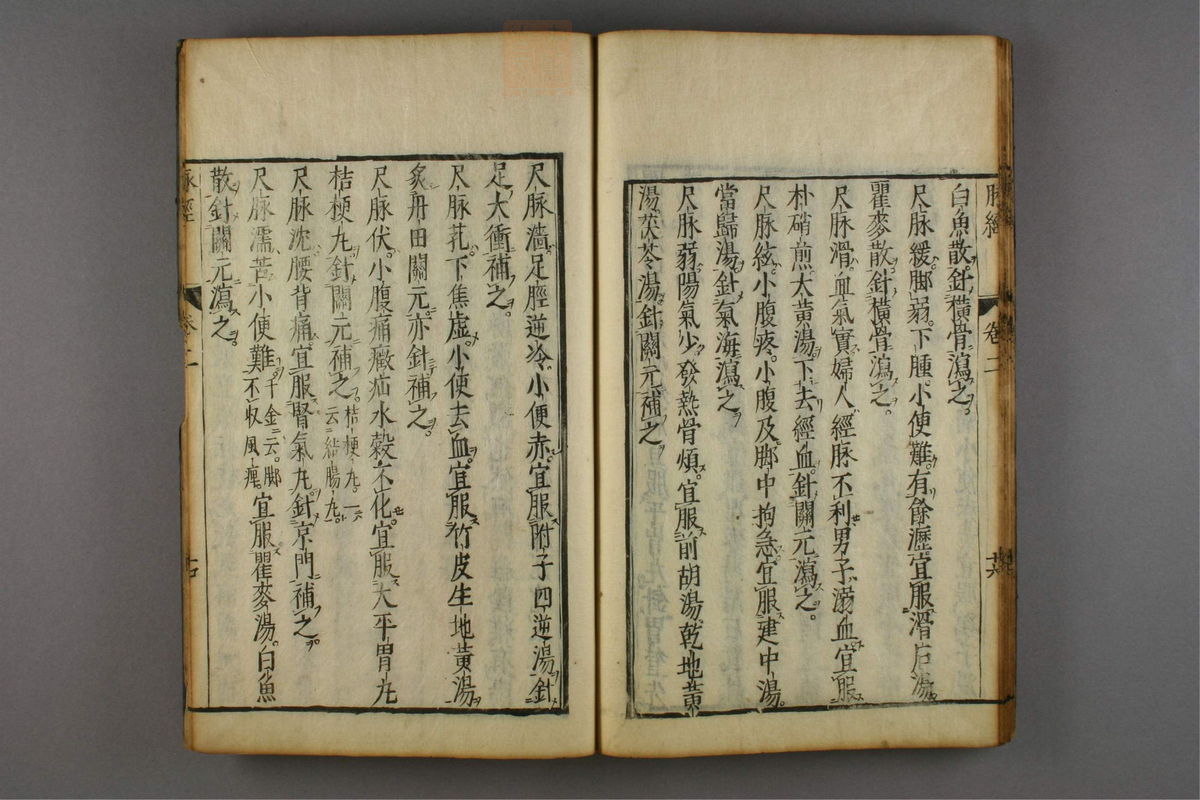 脉經 卷二
白魚散。針横骨瀉之。
尺脉緩。脚弱。下腫。小便難。有餘瀝。宜服滑石湯
瞿麥散。針横骨瀉之。
尺脉滑。血氣實。婦人經脉不利。男子溺血。宜服
朴硝煎。大黃湯。下去經血。針關元瀉之。
尺脉弦。小腹疼。小腹及脚中拘急。宜服建中湯。
當歸湯。針氣海瀉之
尺脉弱。陽氣少。發熱骨煩。宜服前胡湯。乾地黃
湯。茯苓湯。針關元補之
尺脉濇。足脛逆冷。小便赤。宜服附子四逆湯。針
足大衝補之。
尺脉芤。下焦虚。小便去血。宜服竹皮生地黃湯。
炙丹田關元。亦針補之。
尺脉伏。小腹痛。癥疝。水穀不化。宜服大平胃丸
桔梗丸。針關元補之。桔梗丸。一云結腸丸。
尺脉沈。腰背痛。宜服腎氣丸。針京門補之。
尺脉濡。苦小便難。千金云。脚不収風痺。宜服瞿麥湯。白魚
散。針關元瀉之。
脉經 卷二